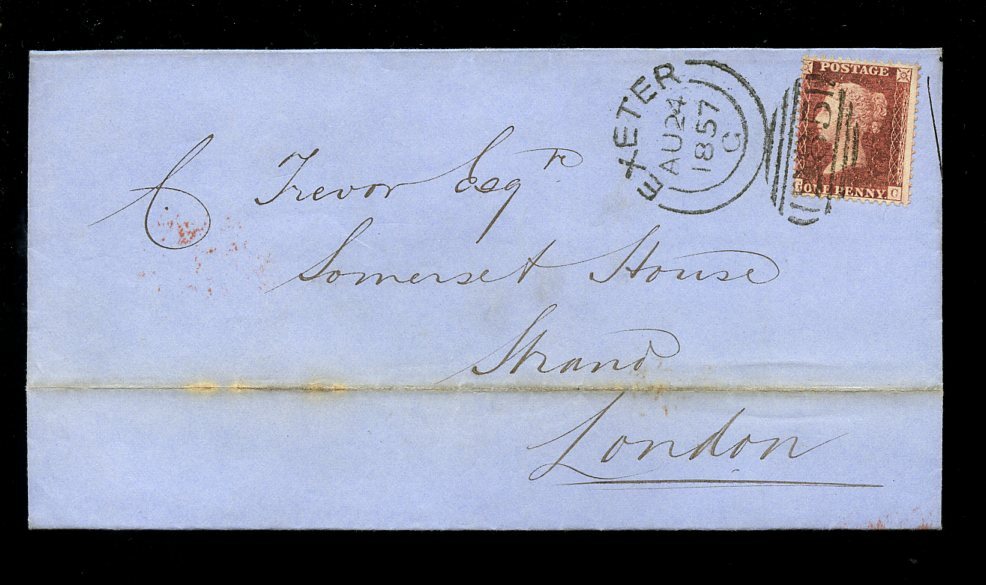 EXETER
AU 24
1857
C
POSTAGE
ONE PENNY
C
C Trevor Esqr
Somerset House
Strand
London